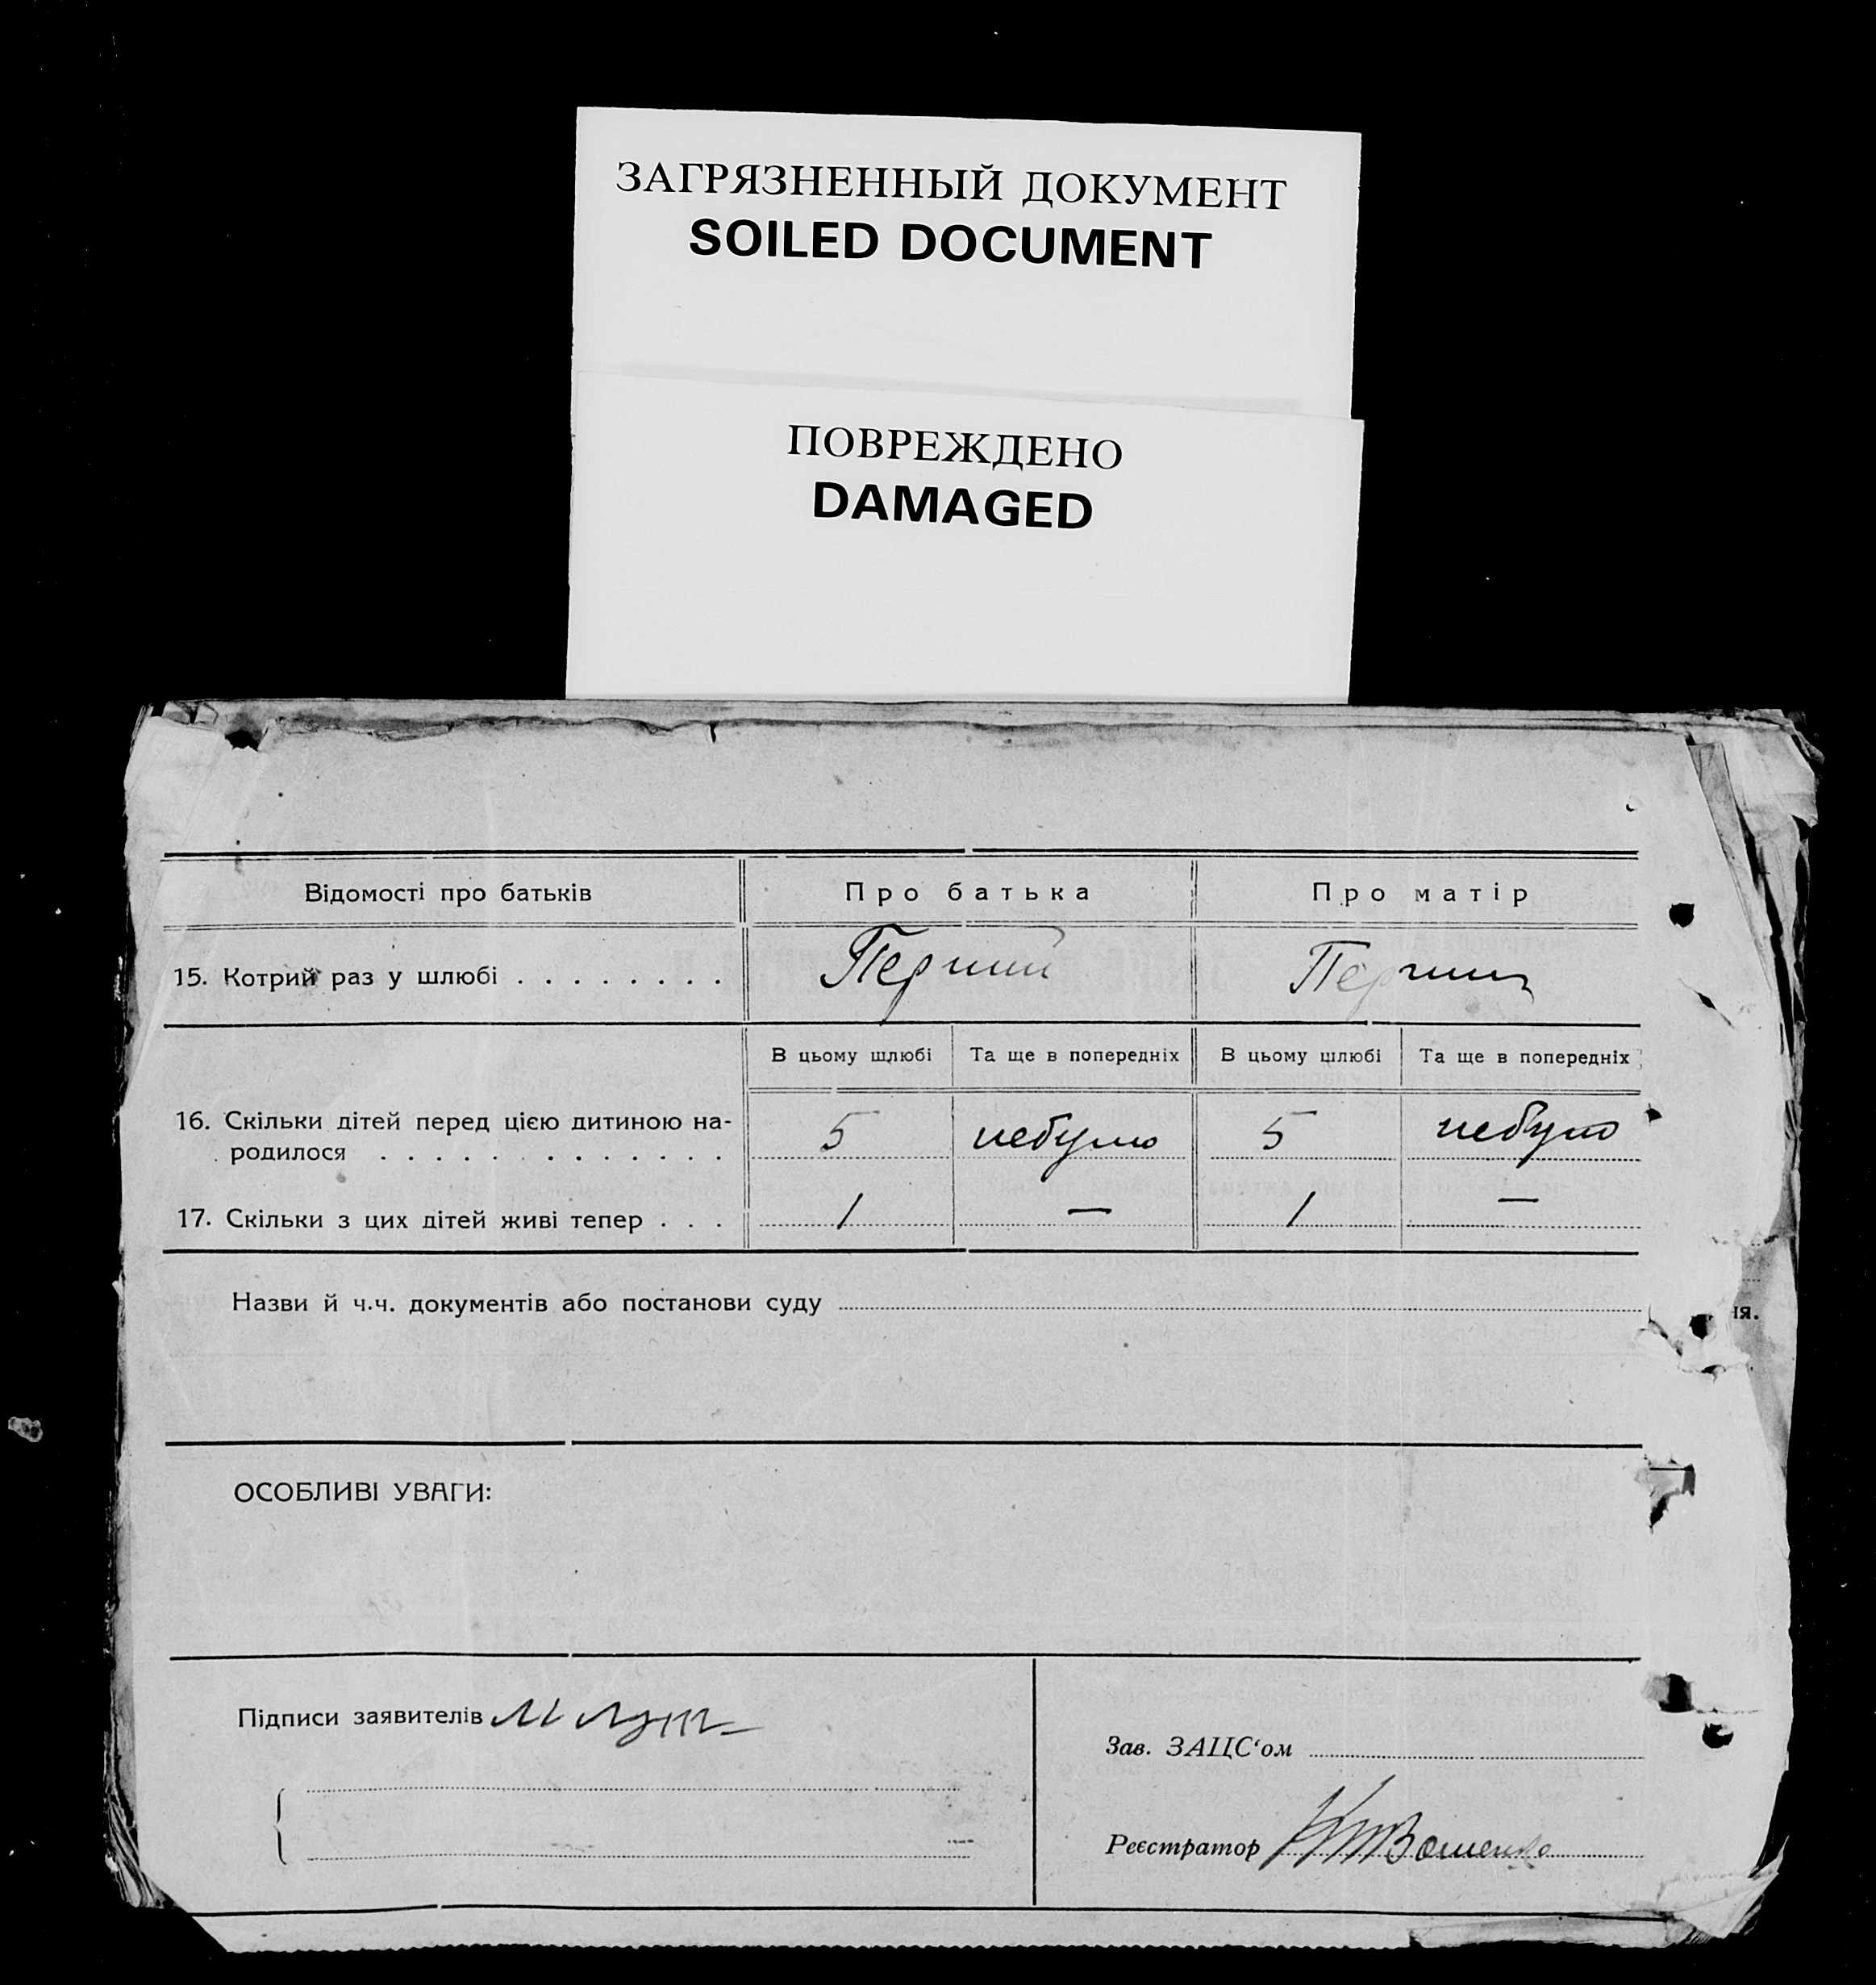 ЗАГРЯЗНЕННЫЙ ДОКУМЕНТ
SOILED DOCUMENT
ПОВРЕЖДЕНО
DAMAGED
Відомості про батьків Про батька Про матір
15. Котрий раз у шлюбі . . . . . . . . Перший Перший
В цьому шлюбі Та ще в попередніх В цьому шлюбі Та ще в попередніх
16. Скільки дітей перед цією дитиною на-
родилося . . . . . . . . . . . . . 5 небуло 5 небуло
17. Скільки з цих дітей живі тепер . . . 1 — 1 —
Назви й ч.ч. документів або постанови суду
ня.
ОСОБЛИВІ УВАГИ:
Підписи заявителів
Зав. ЗАЦС‘ом
Реєстратор